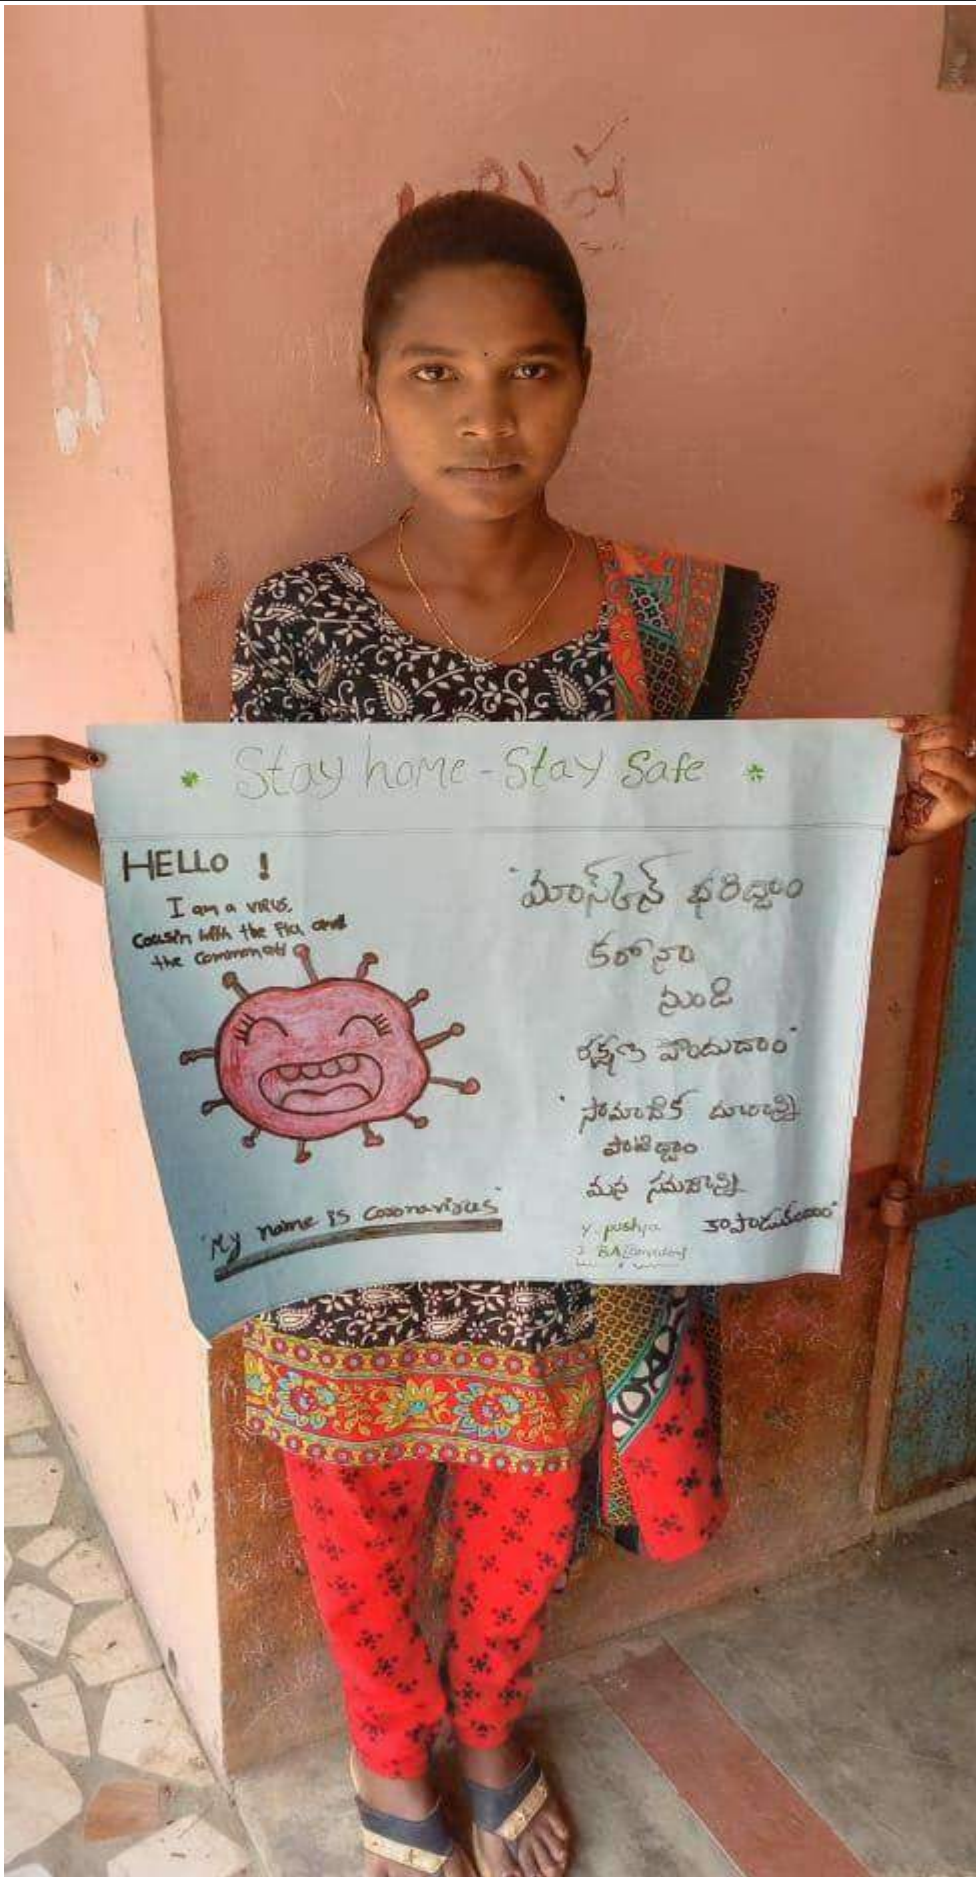 * Stay home - Stay Safe *
HELLO !
I am a VIRUS,
Cousin with the Flu and
the Common
"My name is coronavirus"
"మాస్క్‌ను ధరిద్దాం
కరోనా
నుండి
రక్షణ పొందుదాం"
"సామాజిక దూరాన్ని
పాటిద్దాం
మన సమాజాన్ని
కాపాడుకుందాం"
Y. pushpa
BA